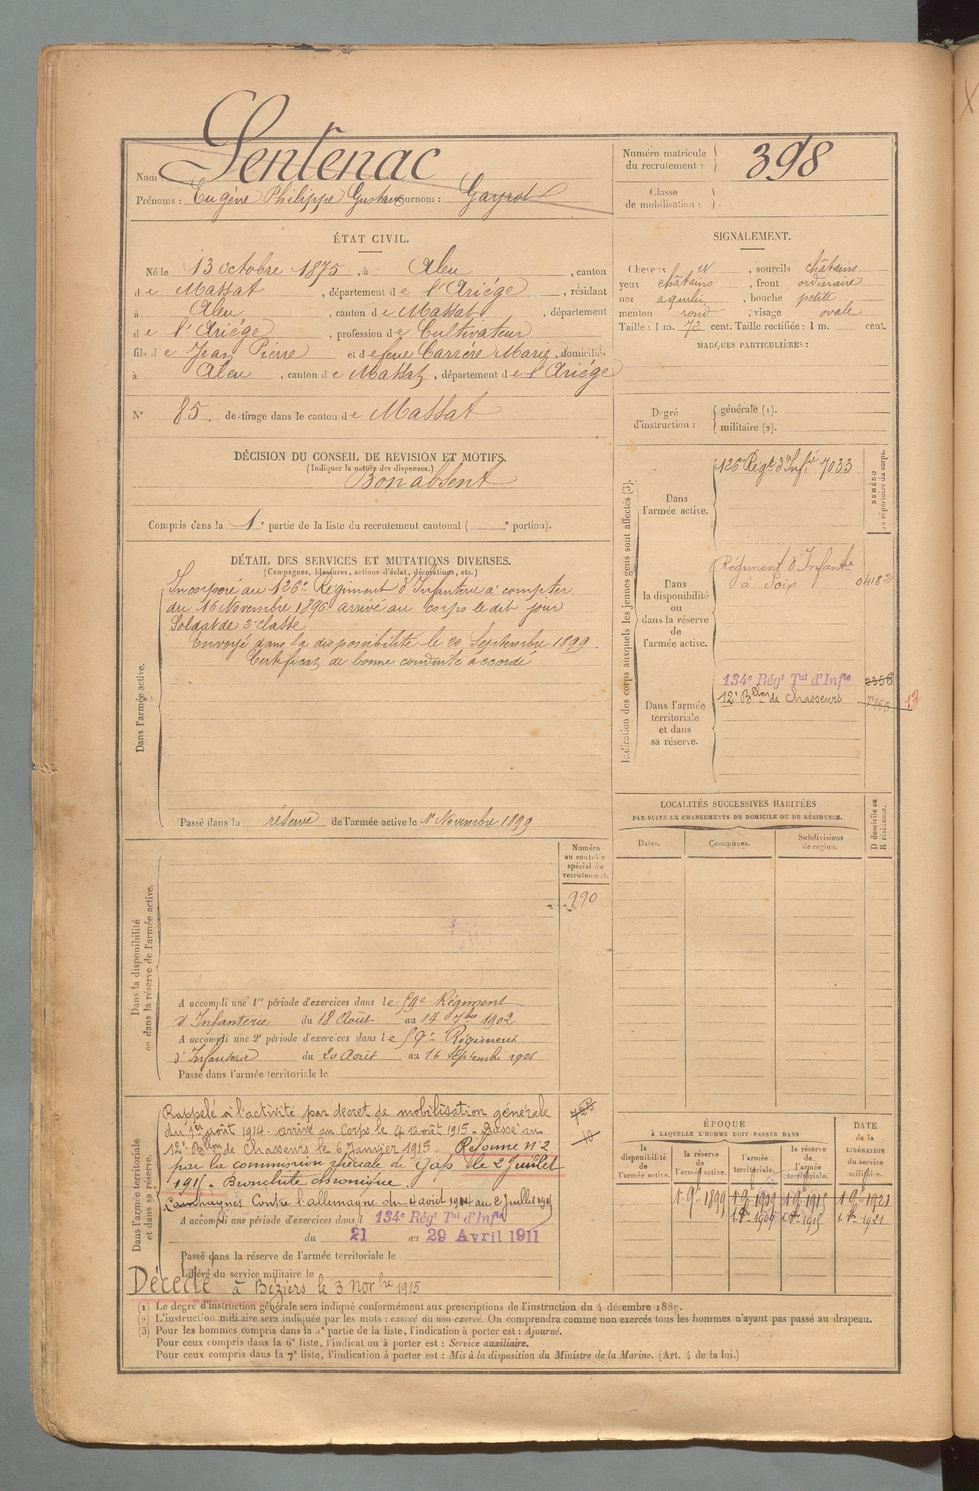 Nom : Sentenac
Prénoms : Eugène Philippe Gustave surnom : Gayrol
Numéro matricule du recrutement : 398
Classe de mobilisation :
ÉTAT CIVIL.
Né le 13 octobre 1875, à Aleu, canton
de Massat, département de l'Ariége, résidant
à Aleu, canton de Massat, département
de l'Ariége, profession de Cultivateur
fils de Jean Pierre et de feue Carrère Marie, domiciliés
à Aleu, canton de Massat, département de l'Ariége
N° 85. de tirage dans le canton de Massat
SIGNALEMENT.
Cheveux, sourcils châtains
yeux châtains, front ordinaire
nez aquilin, bouche petite
menton rond, visage ovale
Taille : 1 m. 72 cent. Taille rectifiée : 1 m. cent.
MARQUES PARTICULIÈRES :
Degré d'instruction : générale (1).
militaire (2).
DÉCISION DU CONSEIL DE REVISION ET MOTIFS.
(Indiquer la nature des dispenses.)
Bon absent
Compris dans la 1e partie de la liste du recrutement cantonal ( e portion).
DÉTAIL DES SERVICES ET MUTATIONS DIVERSES.
(Campagnes, blessures, actions d'éclat, décorations, etc.)
Dans l'armée active.
Incorporé au 126e Régiment d'Infanterie à compter
du 16 Novembre 1896 arrivé au corps le dit jour
Soldat de 2e classe
Envoyé dans la disponibilité le 20 Septembre 1899.
Certificat de bonne conduite accordé
Passé dans la réserve de l'armée active le 1er Novembre 1899
Indication des corps auxquels les jeunes gens sont affectés (3).
NUMÉRO au répertoire du corps.
Dans l'armée active.
126e Régt d'Infie 7033
Dans la disponibilité ou dans la réserve de l'armée active.
Régiment d'Infanterie
à Foix
Dans l'armée territoriale et dans sa réserve.
134e Régt Tal d'Infie 2356
12e Blon de Chasseurs
13
LOCALITÉS SUCCESSIVES HABITÉES
PAR SUITE DE CHANGEMENTS DE DOMICILE OU DE RÉSIDENCE.
Dates.
Communes.
Subdivisions de région.
D domicile ou R résidence.
Dans la disponibilité ou dans la réserve de l'armée active.
Numéro au contrôle spécial du recrutement.
990
A accompli une 1re période d'exercices dans le 59e Régiment
d'Infanterie du 18 Août au 14 7bre 1902
A accompli une 2e période d'exercices dans le 59e Régiment
d'Infanterie du 20 Août au 16 Septembre 1906
Passé dans l'armée territoriale le
Dans l'armée territoriale et dans sa réserve.
Rappelé à l'activité par décret de mobilisation générale
du 1er août 1914. arrivé au corps le 4 août 1915. Passé au
12e Blon de Chasseurs le 6 Janvier 1915. Réformé n°2
par la commission spéciale de Gap le 2 Juillet
1915. Bronchite chronique.
Campagnes Contre l'allemagne du 4 août 1914 au 2 juillet 1915
A accompli une période d'exercices dans l 134e Régt Tal d'Infie
du 21 au 29 Avril 1911
Passé dans la réserve de l'armée territoriale le
Libéré du service militaire le
Décédé à Béziers le 3 Novbre 1915
ÉPOQUE
À LAQUELLE L'HOMME DOIT PASSER DANS
la disponibilité de l'armée active.
la réserve de l'armée active.
l'armée territoriale.
la réserve de l'armée territoriale.
DATE de la LIBÉRATION du service militaire.
1. 9bre 1899
1909
1915
1921
1909
1915
1921
(1) Le degré d'instruction générale sera indiqué conformément aux prescriptions de l'instruction du 4 décembre 1889.
(2) L'instruction militaire sera indiquée par les mots : exercé ou non exercé. On comprendra comme non exercés tous les hommes n'ayant pas passé au drapeau.
(3) Pour les hommes compris dans la 5e partie de la liste, l'indication à porter est : Ajourné.
Pour ceux compris dans la 6e liste, l'indication à porter est : Service auxiliaire.
Pour ceux compris dans la 7e liste, l'indication à porter est : Mis à la disposition du Ministre de la Marine. (Art. 4 de la loi.)